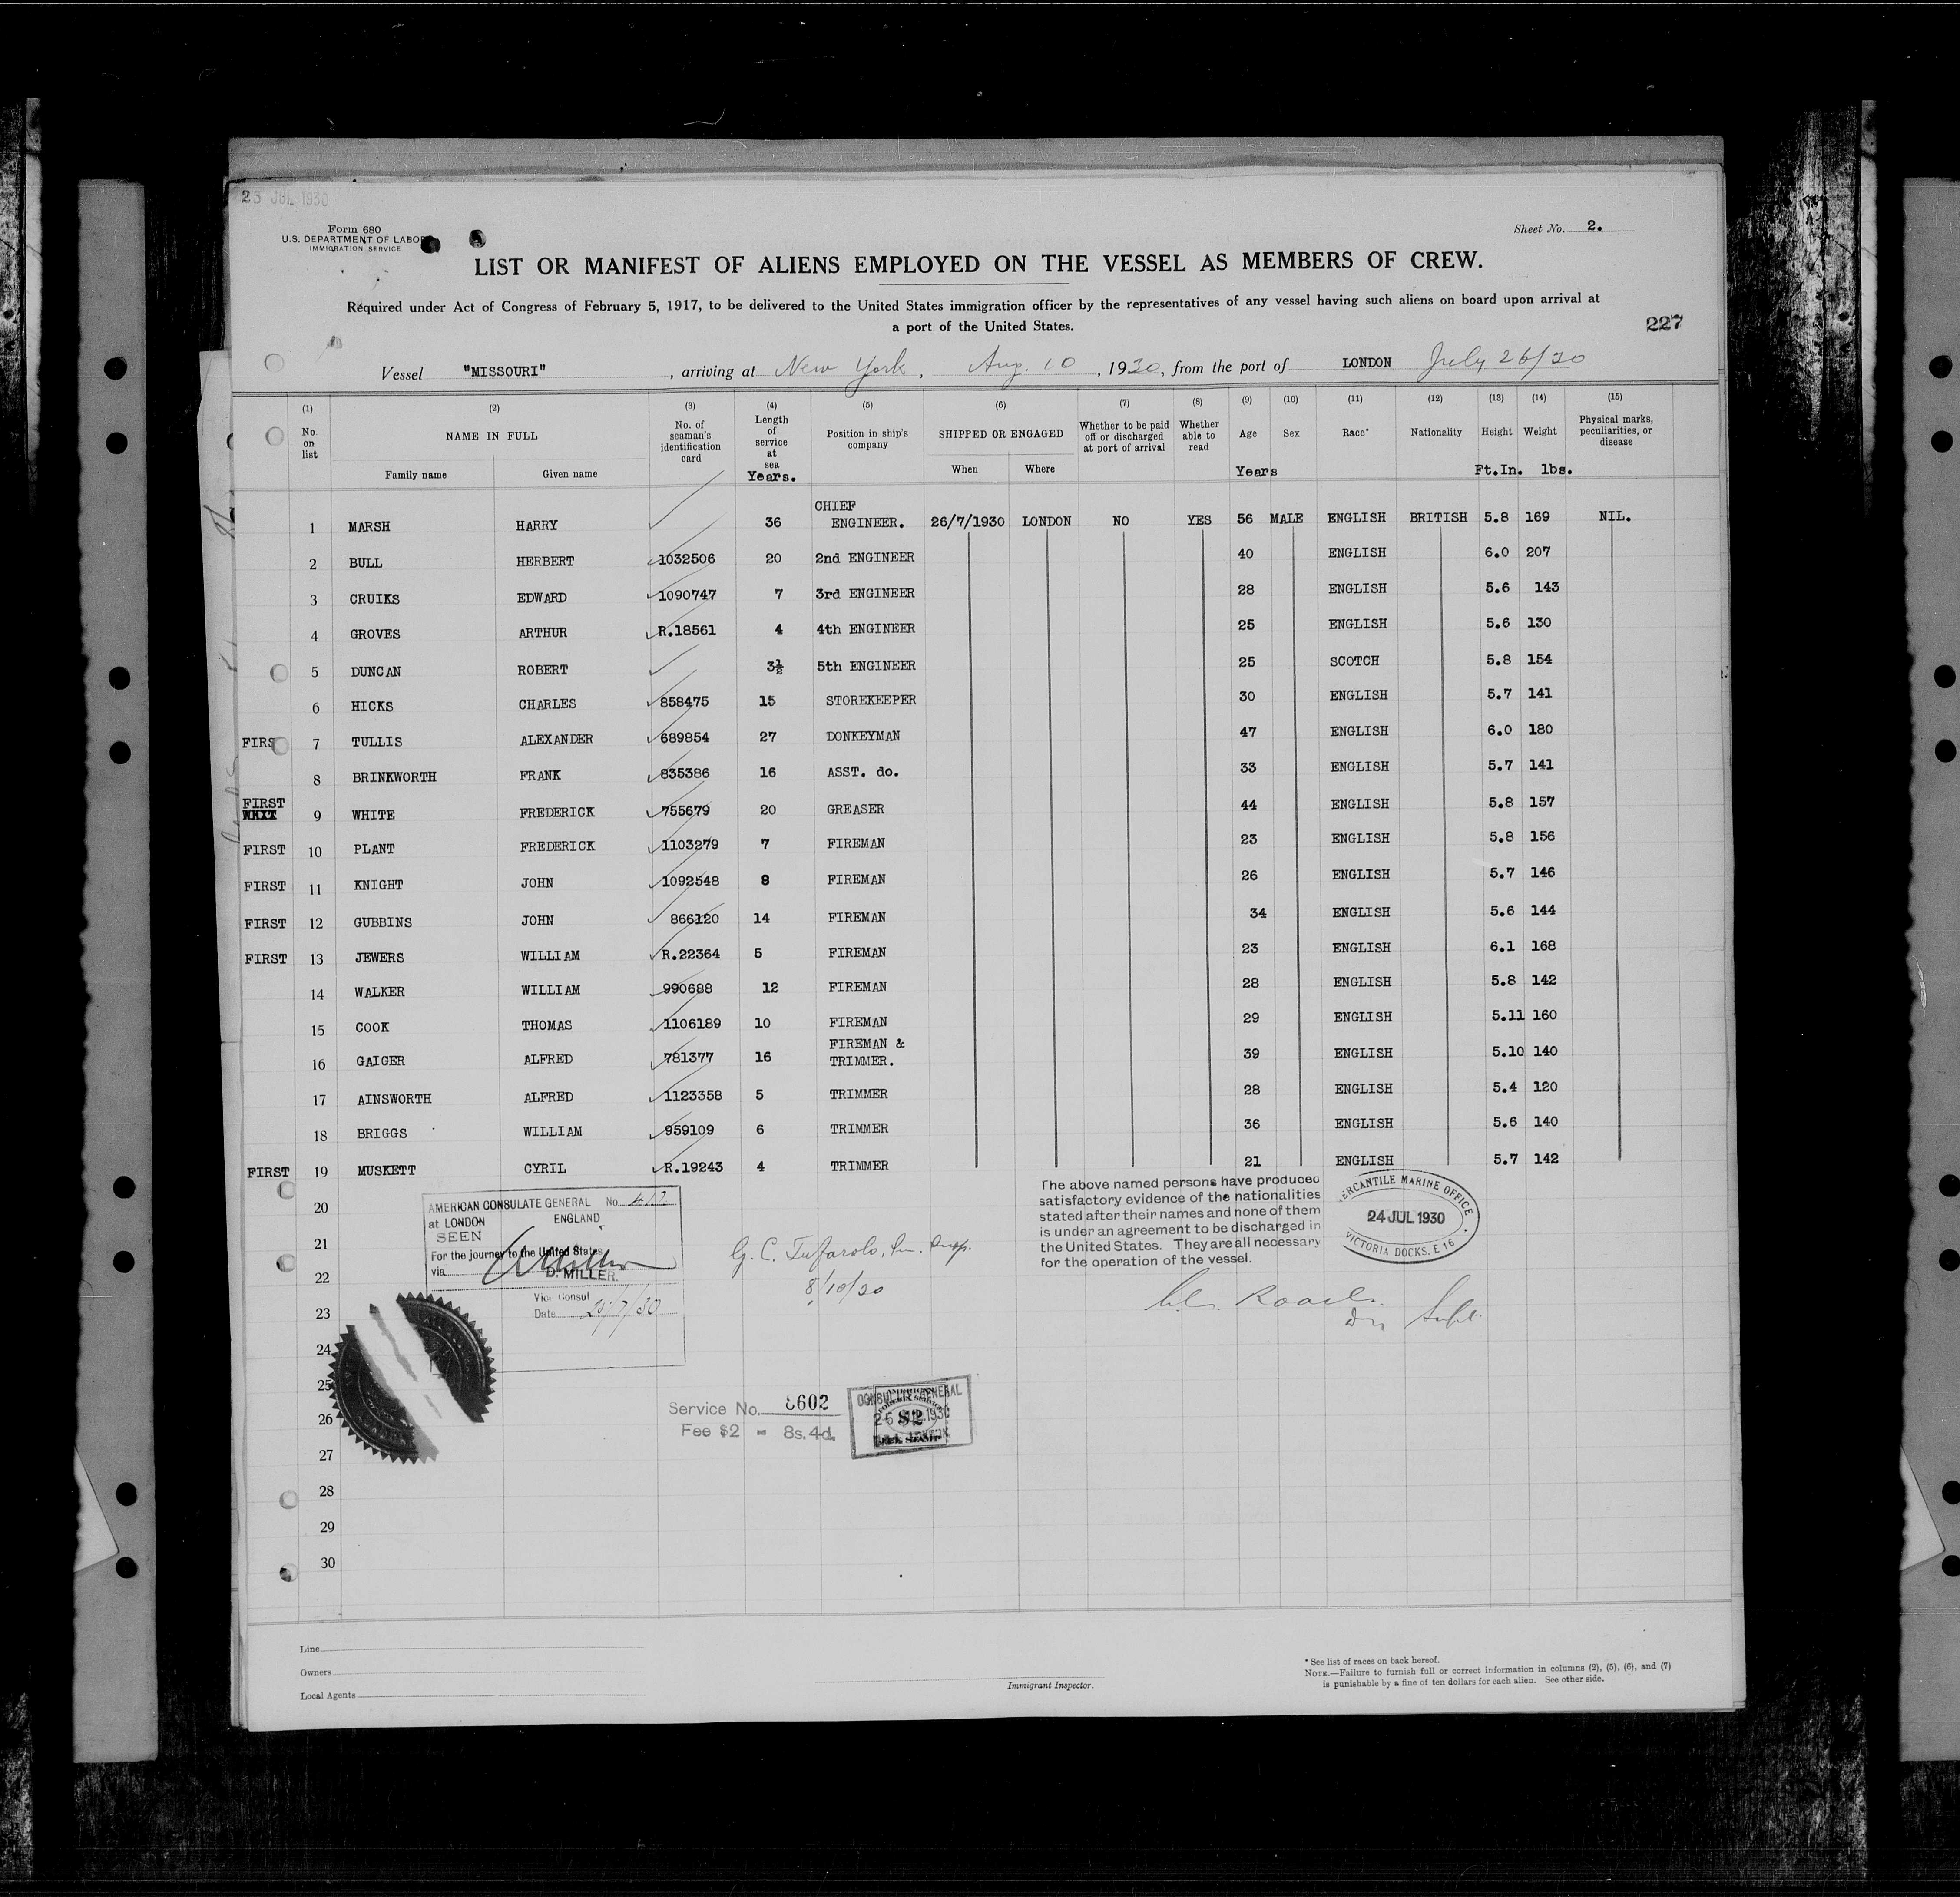 25 JUL 1930
Form 680
U.S. DEPARTMENT OF LABOR
IMMIGRATION SERVICE
Sheet No. 2.
LIST OR MANIFEST OF ALIENS EMPLOYED ON THE VESSEL AS MEMBERS OF CREW.
Required under Act of Congress of February 5, 1917, to be delivered to the United States immigration officer by the representatives of any vessel having such aliens on board upon arrival at
a port of the United States.
227
Vessel "MISSOURI", arriving at New York, Aug. 10, 1930, from the port of LONDON July 26/30
(1) (2) (3) (4) (5) (6) (7) (8) (9) (10) (11) (12) (13) (14) (15)
No. on list NAME IN FULL Family name Given name No. of seaman's identification card Length of service at sea Years. Position in ship's company SHIPPED OR ENGAGED When Where Whether to be paid off or discharged at port of arrival Whether able to read Age Years Sex Race* Nationality Height Ft.In. Weight lbs. Physical marks, peculiarities, or disease
1 MARSH HARRY 36 CHIEF ENGINEER. 26/7/1930 LONDON NO YES 56 MALE ENGLISH BRITISH 5.8 169 NIL.
2 BULL HERBERT 1032506 20 2nd ENGINEER 40 ENGLISH 6.0 207
3 CRUIKS EDWARD 1090747 7 3rd ENGINEER 28 ENGLISH 5.6 143
4 GROVES ARTHUR R.18561 4 4th ENGINEER 25 ENGLISH 5.6 130
5 DUNCAN ROBERT 3½ 5th ENGINEER 25 SCOTCH 5.8 154
6 HICKS CHARLES 858475 15 STOREKEEPER 30 ENGLISH 5.7 141
FIRS 7 TULLIS ALEXANDER 689854 27 DONKEYMAN 47 ENGLISH 6.0 180
8 BRINKWORTH FRANK 835386 16 ASST. do. 33 ENGLISH 5.7 141
FIRST 9 WHITE FREDERICK 755679 20 GREASER 44 ENGLISH 5.8 157
FIRST 10 PLANT FREDERICK 1103279 7 FIREMAN 23 ENGLISH 5.8 156
FIRST 11 KNIGHT JOHN 1092548 8 FIREMAN 26 ENGLISH 5.7 146
FIRST 12 GUBBINS JOHN 866120 14 FIREMAN 34 ENGLISH 5.6 144
FIRST 13 JEWERS WILLIAM R.22364 5 FIREMAN 23 ENGLISH 6.1 168
14 WALKER WILLIAM 990688 12 FIREMAN 28 ENGLISH 5.8 142
15 COOK THOMAS 1106189 10 FIREMAN 29 ENGLISH 5.11 160
16 GAIGER ALFRED 781377 16 FIREMAN & TRIMMER. 39 ENGLISH 5.10 140
17 AINSWORTH ALFRED 1123358 5 TRIMMER 28 ENGLISH 5.4 120
18 BRIGGS WILLIAM 959109 6 TRIMMER 36 ENGLISH 5.6 140
FIRST 19 MUSKETT CYRIL R.19243 4 TRIMMER 21 ENGLISH 5.7 142
20
21
22
23
24
25
26
27
28
29
30
AMERICAN CONSULATE GENERAL No.
at LONDON ENGLAND
SEEN
For the journey to the United States
via
D. MILLER.
Vice Consul
Date 25/7/30
G. C.
8/10/30
The above named persons have produced
satisfactory evidence of the nationalities
stated after their names and none of them
is under an agreement to be discharged in
the United States. They are all necessary
for the operation of the vessel.
MERCANTILE MARINE OFFICE
24 JUL 1930
VICTORIA DOCKS, E 16
Service No. 8602
Fee $2 = 8s. 4d.
CONSULATE GENERAL
$2
Line
Owners
Local Agents
Immigrant Inspector.
* See list of races on back hereof.
NOTE.—Failure to furnish full or correct information in columns (2), (5), (6), and (7)
is punishable by a fine of ten dollars for each alien. See other side.